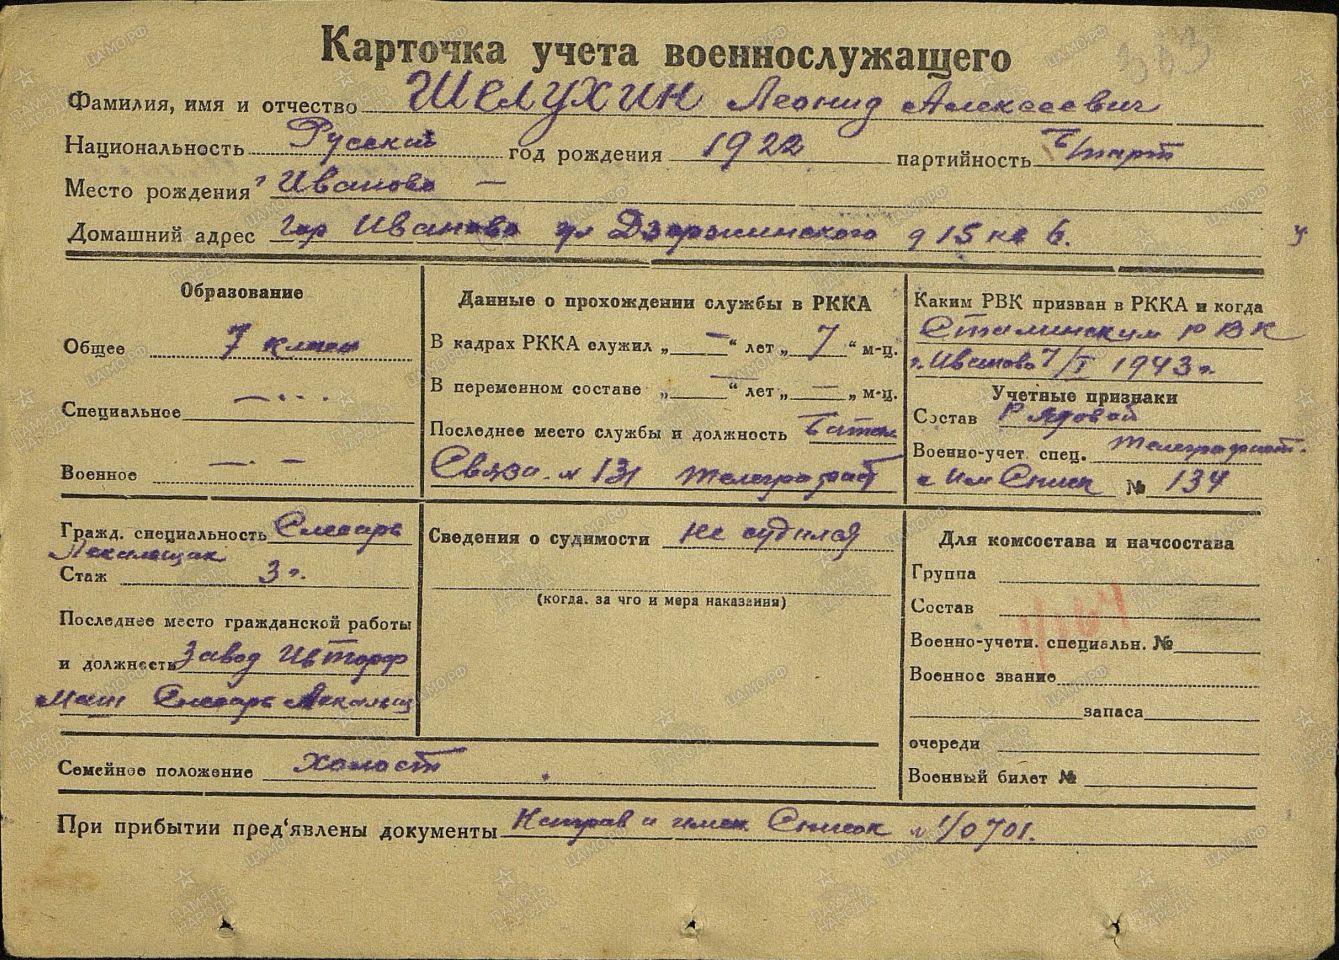 383
Карточка учета военнослужащего
Фамилия, имя и отчество ШЕЛУХИН Леонид Алексеевич
Национальность Русский год рождения 1922 партийность б/парт
Место рождения Иваново —
Домашний адрес гор Иваново ул Дзержинского д 15 кв 6.
Образование
Общее 7 класс
Специальное —
Военное —
Данные о прохождении службы в РККА
В кадрах РККА служил „ — “ лет „ 7 “ м-ц.
В переменном составе „ — “ лет „ — „ м-ц.
Последнее место службы и должность Батал
Связи № 131 телеграфист
Каким РВК призван в РККА и когда
Сталинским РВК
г. Иваново 7/I 1943 г.
Учетные признаки
Состав Рядовой
Военно-учет. спец. телеграфист.
Список № 134
Гражд. специальность Слесарь
Лекальщик
Стаж 3 г.
Последнее место гражданской работы
и должность Завод Ивторф
маш Слесарь Лекальщ
Сведения о судимости не судился
(когда, за что и мера наказания)
Для комсостава и начсостава
Группа
Состав
Военно-учетн. специальн. №
Военное звание
запаса
очереди
Военный билет №
Семейное положение Холост
При прибытии пред‘явлены документы Направ и имен Список № 1/0701.